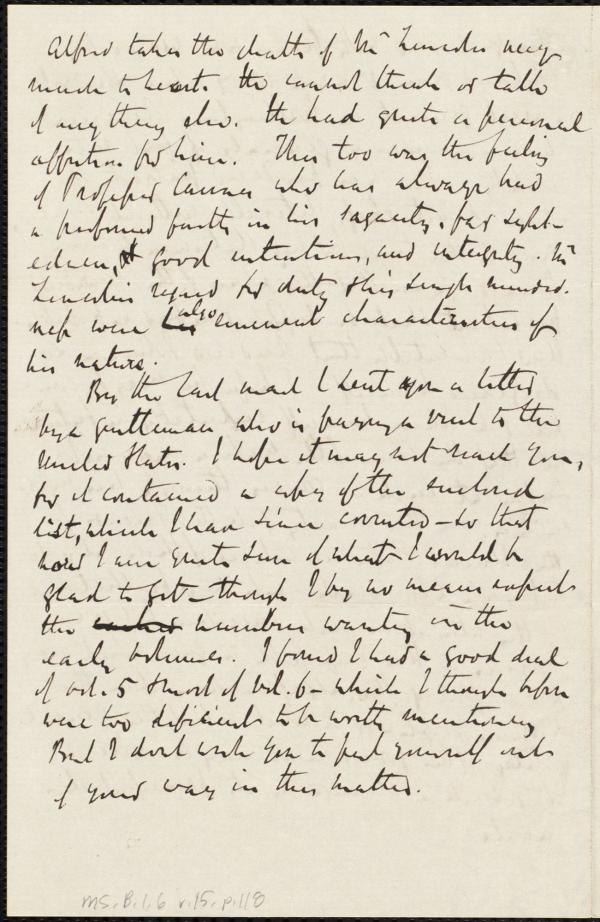 Alfred takes the death of Mr Lincoln very
much to heart. He cannot think or talk
of anything else. He had quite a personal
affection for him. This too was the feeling
of Professor Cairnes who has always had
a profound faith in his sagacity, far sight-
edness, good intentions, and integrity. Mr
Lincoln's regard for duty & his single minded-
ness were also eminent characteristics of
his nature.
By the last mail I sent you a letter
by a gentleman who is paying a visit to the
United States. I hope it may not reach you,
for it contained a copy of the enclosed
list, which I have since corrected - so that
now I am quite sure of what I would be
glad to get - though I by no means expect
the numbers wanting in the
early volumes. I found I had a good deal
of vol. 5 & most of vol. 6 - which I thought before
were too deficient to be worth mentioning
But I don't wish you to put yourself out
of your way in this matter.
MS. B.1.6 v.15, p.118